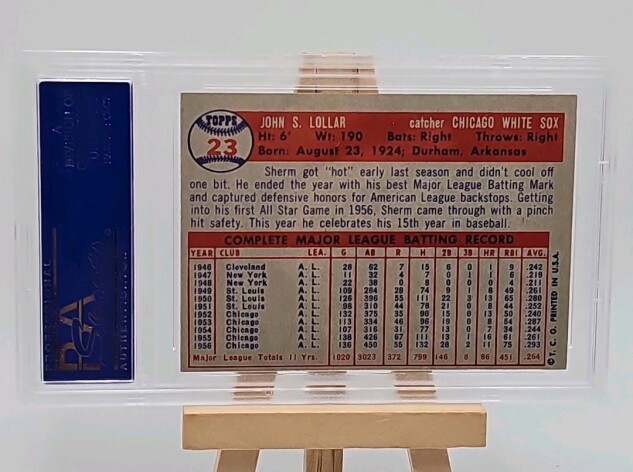 TOPPS
23
JOHN S. LOLLAR catcher CHICAGO WHITE SOX
Ht: 6' Wt: 190 Bats: Right Throws: Right
Born: August 23, 1924; Durham, Arkansas
Sherm got "hot" early last season and didn't cool off
one bit. He ended the year with his best Major League Batting Mark
and captured defensive honors for American League backstops. Getting
into his first All Star Game in 1956, Sherm came through with a pinch
hit safety. This year he celebrates his 15th year in baseball.
COMPLETE MAJOR LEAGUE BATTING RECORD
YEAR CLUB LEA. G AB R H 2B 3B HR RBI AVG.
1946 Cleveland A. L. 28 62 7 15 6 0 1 9 .242
1947 New York A. L. 11 32 4 7 0 1 1 6 .219
1948 New York A. L. 22 38 0 8 0 0 0 4 .211
1949 St. Louis A. L. 109 284 28 74 9 1 8 49 .261
1950 St. Louis A. L. 126 396 55 111 22 3 13 65 .280
1951 St. Louis A. L. 98 310 44 78 21 0 8 44 .252
1952 Chicago A. L. 132 375 35 90 15 0 13 50 .240
1953 Chicago A. L. 113 334 46 96 19 0 8 54 .287
1954 Chicago A. L. 107 316 31 77 13 0 7 34 .244
1955 Chicago A. L. 138 426 67 111 13 1 16 61 .261
1956 Chicago A. L. 136 450 55 132 28 2 11 75 .293
Major League Totals 11 Yrs. 1020 3023 372 799 146 8 86 451 .264
© T. C. G. PRINTED IN U.S.A.
PSA